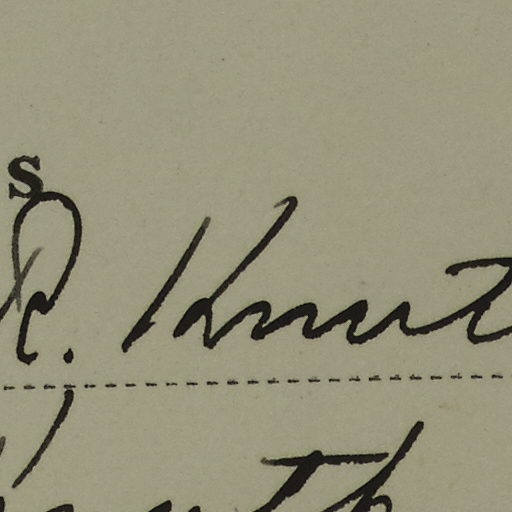 s
R. Knut
nuth